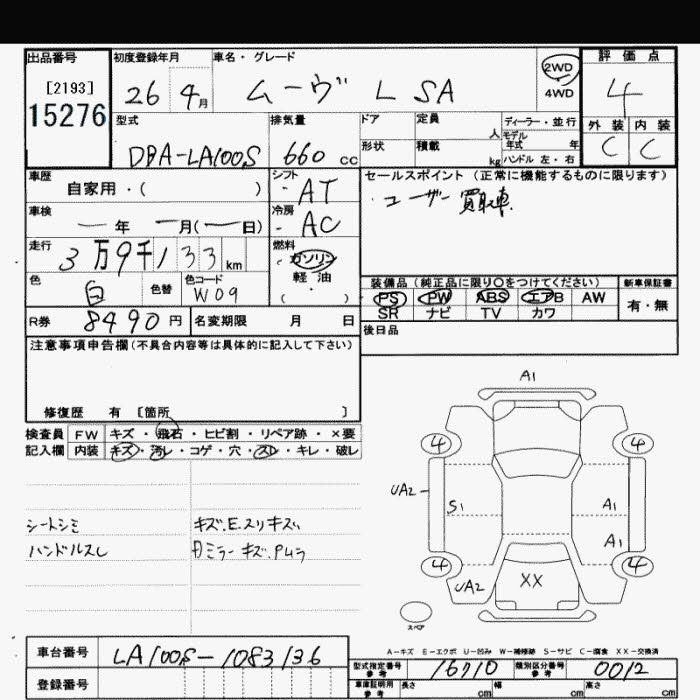 出品番号
[2193]
15276
初度登録年月
26 4月
車名・グレード
ムーヴ L SA
2WD
4WD
評価点
4
外装 内装
C C
型式
DBA-LA100S
排気量
660 cc
ドア
形状
定員 人
積載 kg
ディーラー・並行
モデル年式 年
ハンドル 左・右
車歴
自家用・( )
シフト
AT
車検
— 年 — 月(— 日)
冷房
AC
走行
3万9千133 km
燃料
ガソリン
軽油
( )
色
白
色替
色コード
W09
R券 8490 円
名変期限 月 日
セールスポイント (正常に機能するものに限ります)
ユーザー買取車
装備品 (純正品に限り○をつけてください)
PS PW ABS エアB AW
SR ナビ TV カワ
新車保証書
有・無
後日品
注意事項申告欄(不具合内容等は具体的に記入して下さい)
修復歴 有 [箇所 ]
検査員 FW キズ・飛石・ヒビ割・リペア跡・×要
記入欄 内装 キズ・汚レ・コゲ・穴・スレ・キレ・破レ
シートシミ
ハンドルスレ
キズ.E.スリキズ
ミラーキズ.Pムラ
A1
4 4
UA2 S1 A1
A1
4 4
UA2 XX
スペア
A-キズ E-エクボ U-凹み W-補修跡 S-サビ C-腐食 XX-交換済
車台番号 LA100S-1083136
登録番号
型式指定番号 参考 16710
類別区分番号 参考 0012
車庫証明用 参考 長さ cm 幅 cm 高さ cm